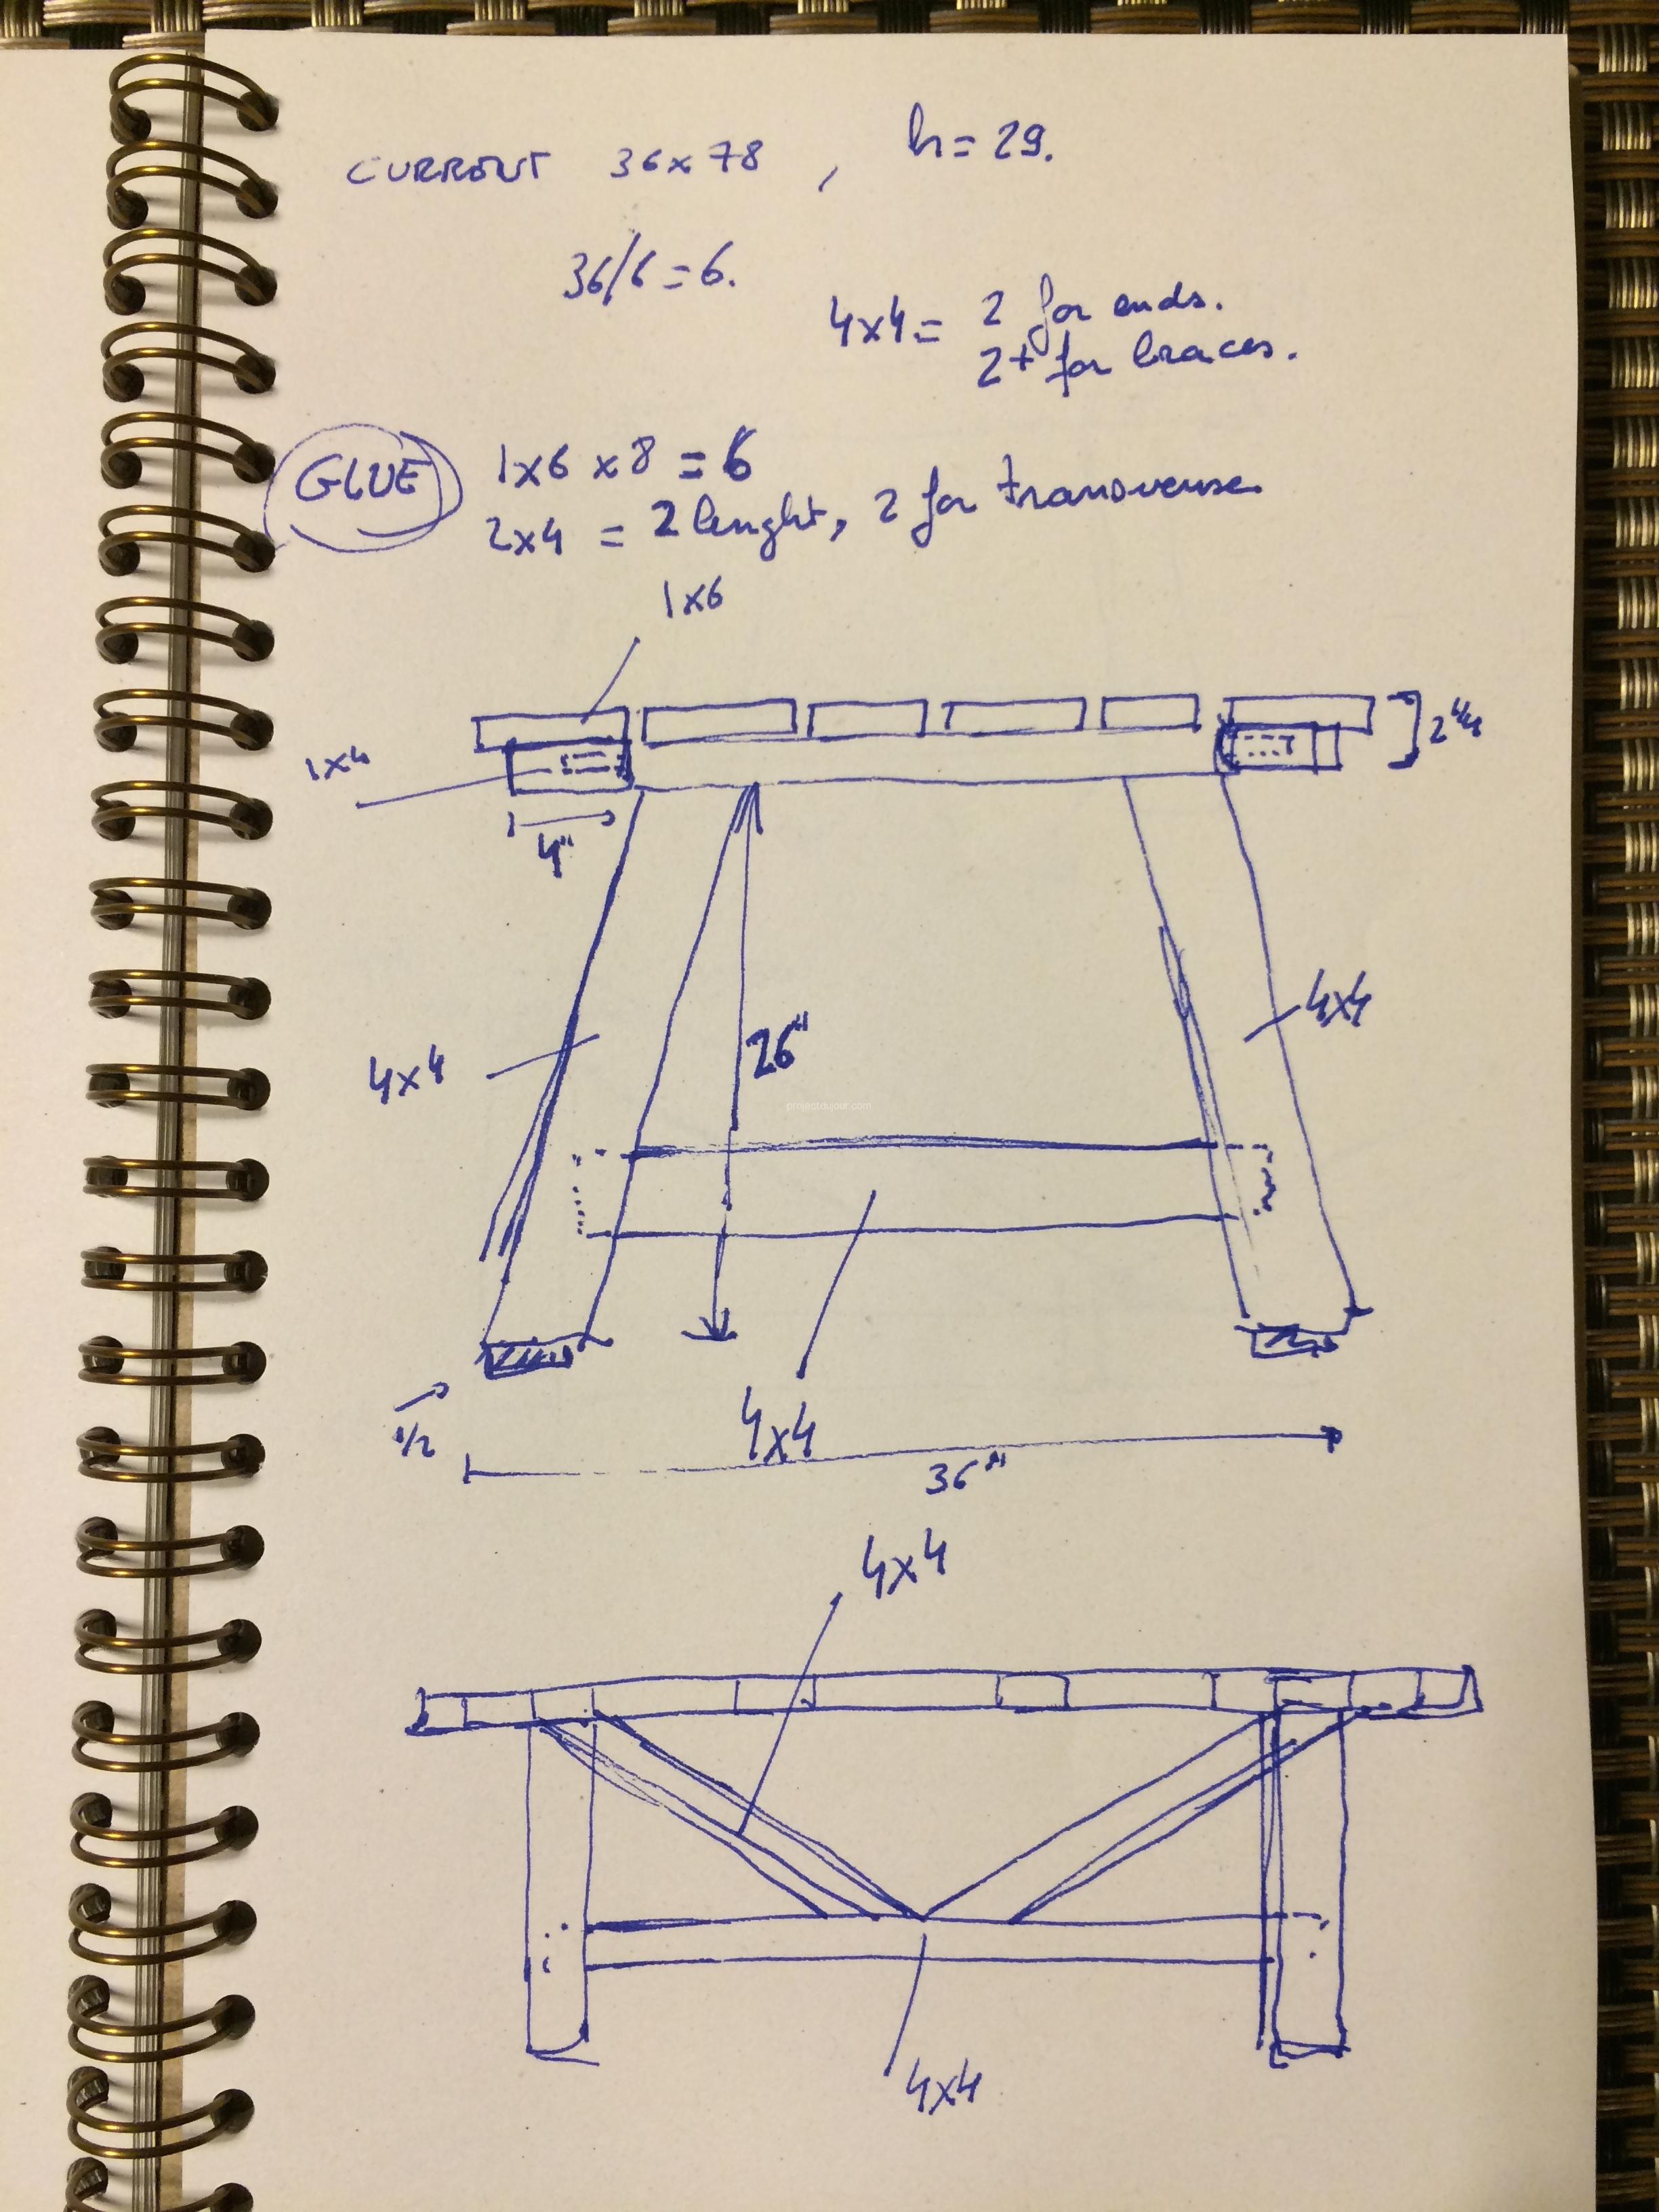 CURRENT 36x78, h=29.
36/6=6.
4x4= 2 for ends.
2+ for braces.
GLUE
1x6 x8 = 6
2x4 = 2 lenght, 2 for transverse
1x6
1x4
4"
4x4
26"
4x4
projectdujour.com
1/2
4x4
36"
4x4
4x4